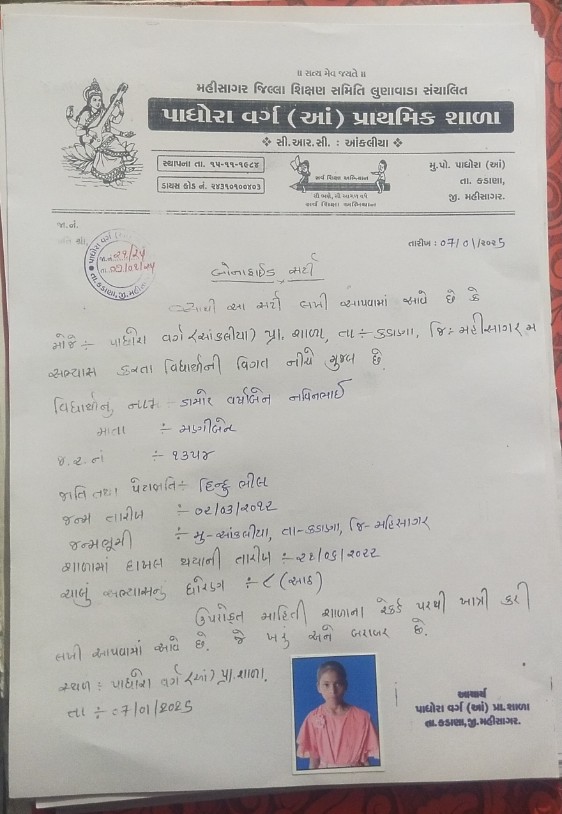 ॥ સત્ય મેવ જયતે ॥
મહીસાગર જિલ્લા શિક્ષણ સમિતિ લુણાવાડા સંચાલિત
પાધોરા વર્ગ (આં) પ્રાથમિક શાળા
❖ સી.આર.સી. : આંકલીયા ❖
સ્થાપના તા. ૧૫-૧૧-૧૯૮૪
ડાયસ કોડ નં. ૨૪૩૧૦૧૦૦૪૦૩
સર્વ શિક્ષા અભિયાન
સૌ ભણે, સૌ આગળ વધે
સર્વ શિક્ષા અભિયાન
મુ.પો. પાધોરા (આં)
તા. કડાણા,
જી. મહીસાગર.
જા.નં.
તારીખ : 07/01/2025
બોનાફાઈડ સર્ટી
આથી આ સર્ટી લખી આપવામાં આવે છે કે
મોજે ÷ પાધોરા વર્ગ (આંકલીયા) પ્રા. શાળા, તા ÷ કડાણા, જિ ÷ મહીસાગર માં
અભ્યાસ કરતા વિદ્યાર્થીની વિગત નીચે મુજબ છે.
વિદ્યાર્થીનું નામ - ડામોર વર્ષાબેન નવિનભાઈ
માતા ÷ મણીબેન
જ.ર.નં ÷ ૧૩૫૪
જાતિ તથા પેટાજાતિ ÷ હિન્દુ ભીલ
જન્મ તારીખ ÷ ૦૨/૦૩/૨૦૧૨
જન્મભૂમી ÷ મુ-આંકલીયા, તા-કડાણા, જિ-મહિસાગર
શાળામાં દાખલ થયાની તારીખ ÷ /૨૦૨૨
ચાલું અભ્યાસનું ધોરણ ÷ ૮ (આઠ)
ઉપરોક્ત માહિતી શાળાના રેકર્ડ પરથી ખાત્રી કરી
લખી આપવામાં આવે છે. જે ખરૂં અને બરાબર છે.
સ્થળ : પાધોરા વર્ગ (આં) પ્રા. શાળા.
તા ÷ 07/01/2025
આચાર્ય
પાધોરા વર્ગ (આં) પ્રા.શાળા
તા.કડાણા,જી.મહીસાગર.